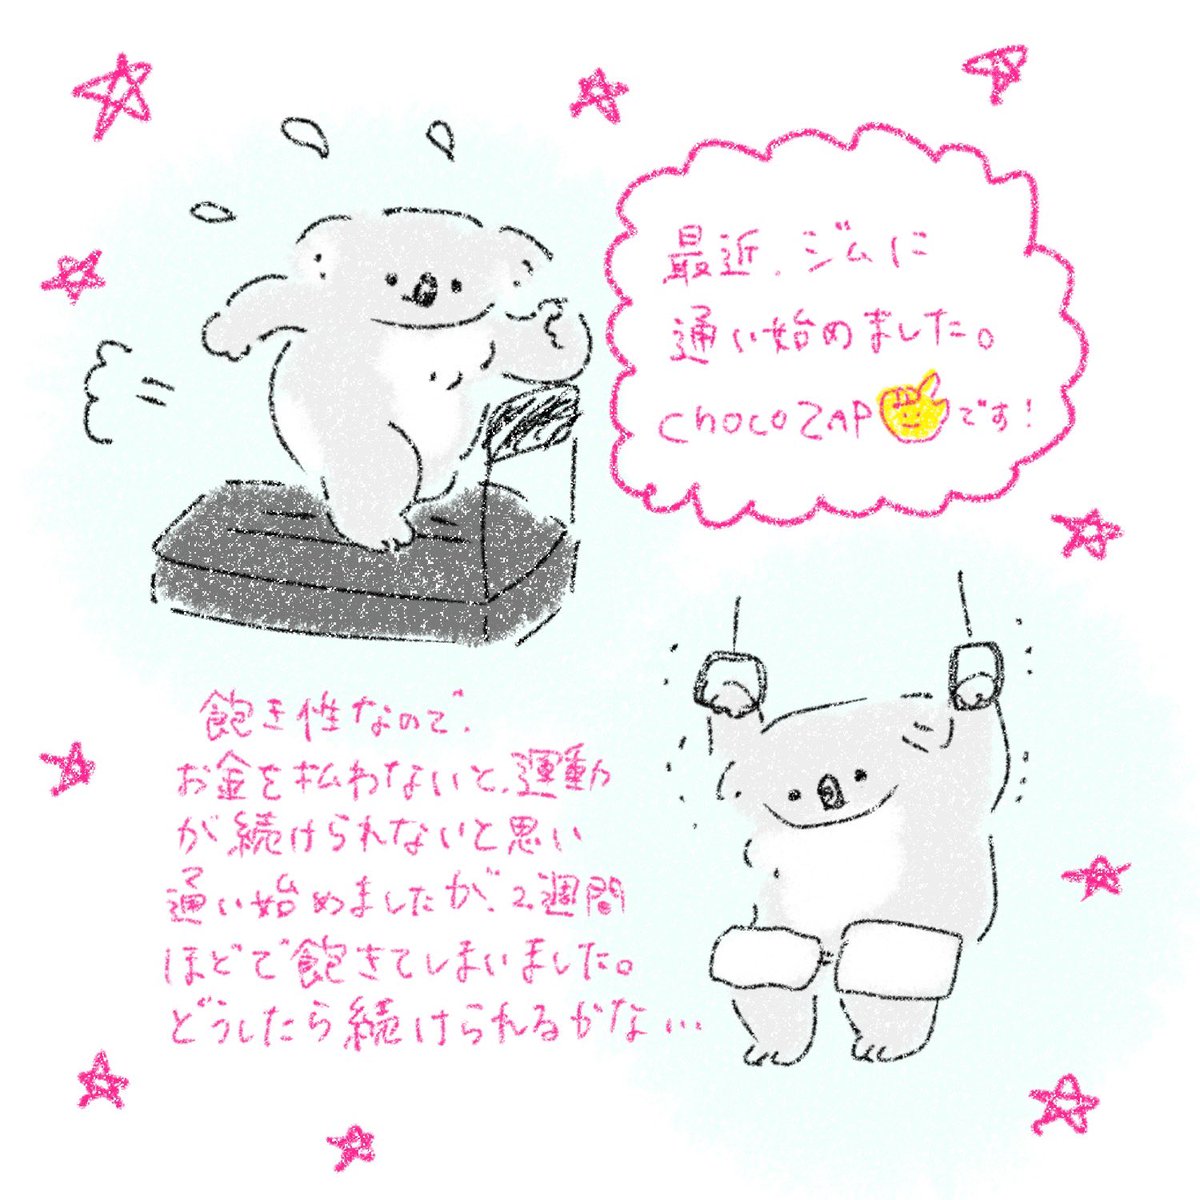 最近、ジムに
通い始めました。
chocoZAPです！
飽き性なので、
お金を払わないと、運動
が続けられないと思い
通い始めましたが、2週間
ほどで飽きてしまいました。
どうしたら続けられるかな…